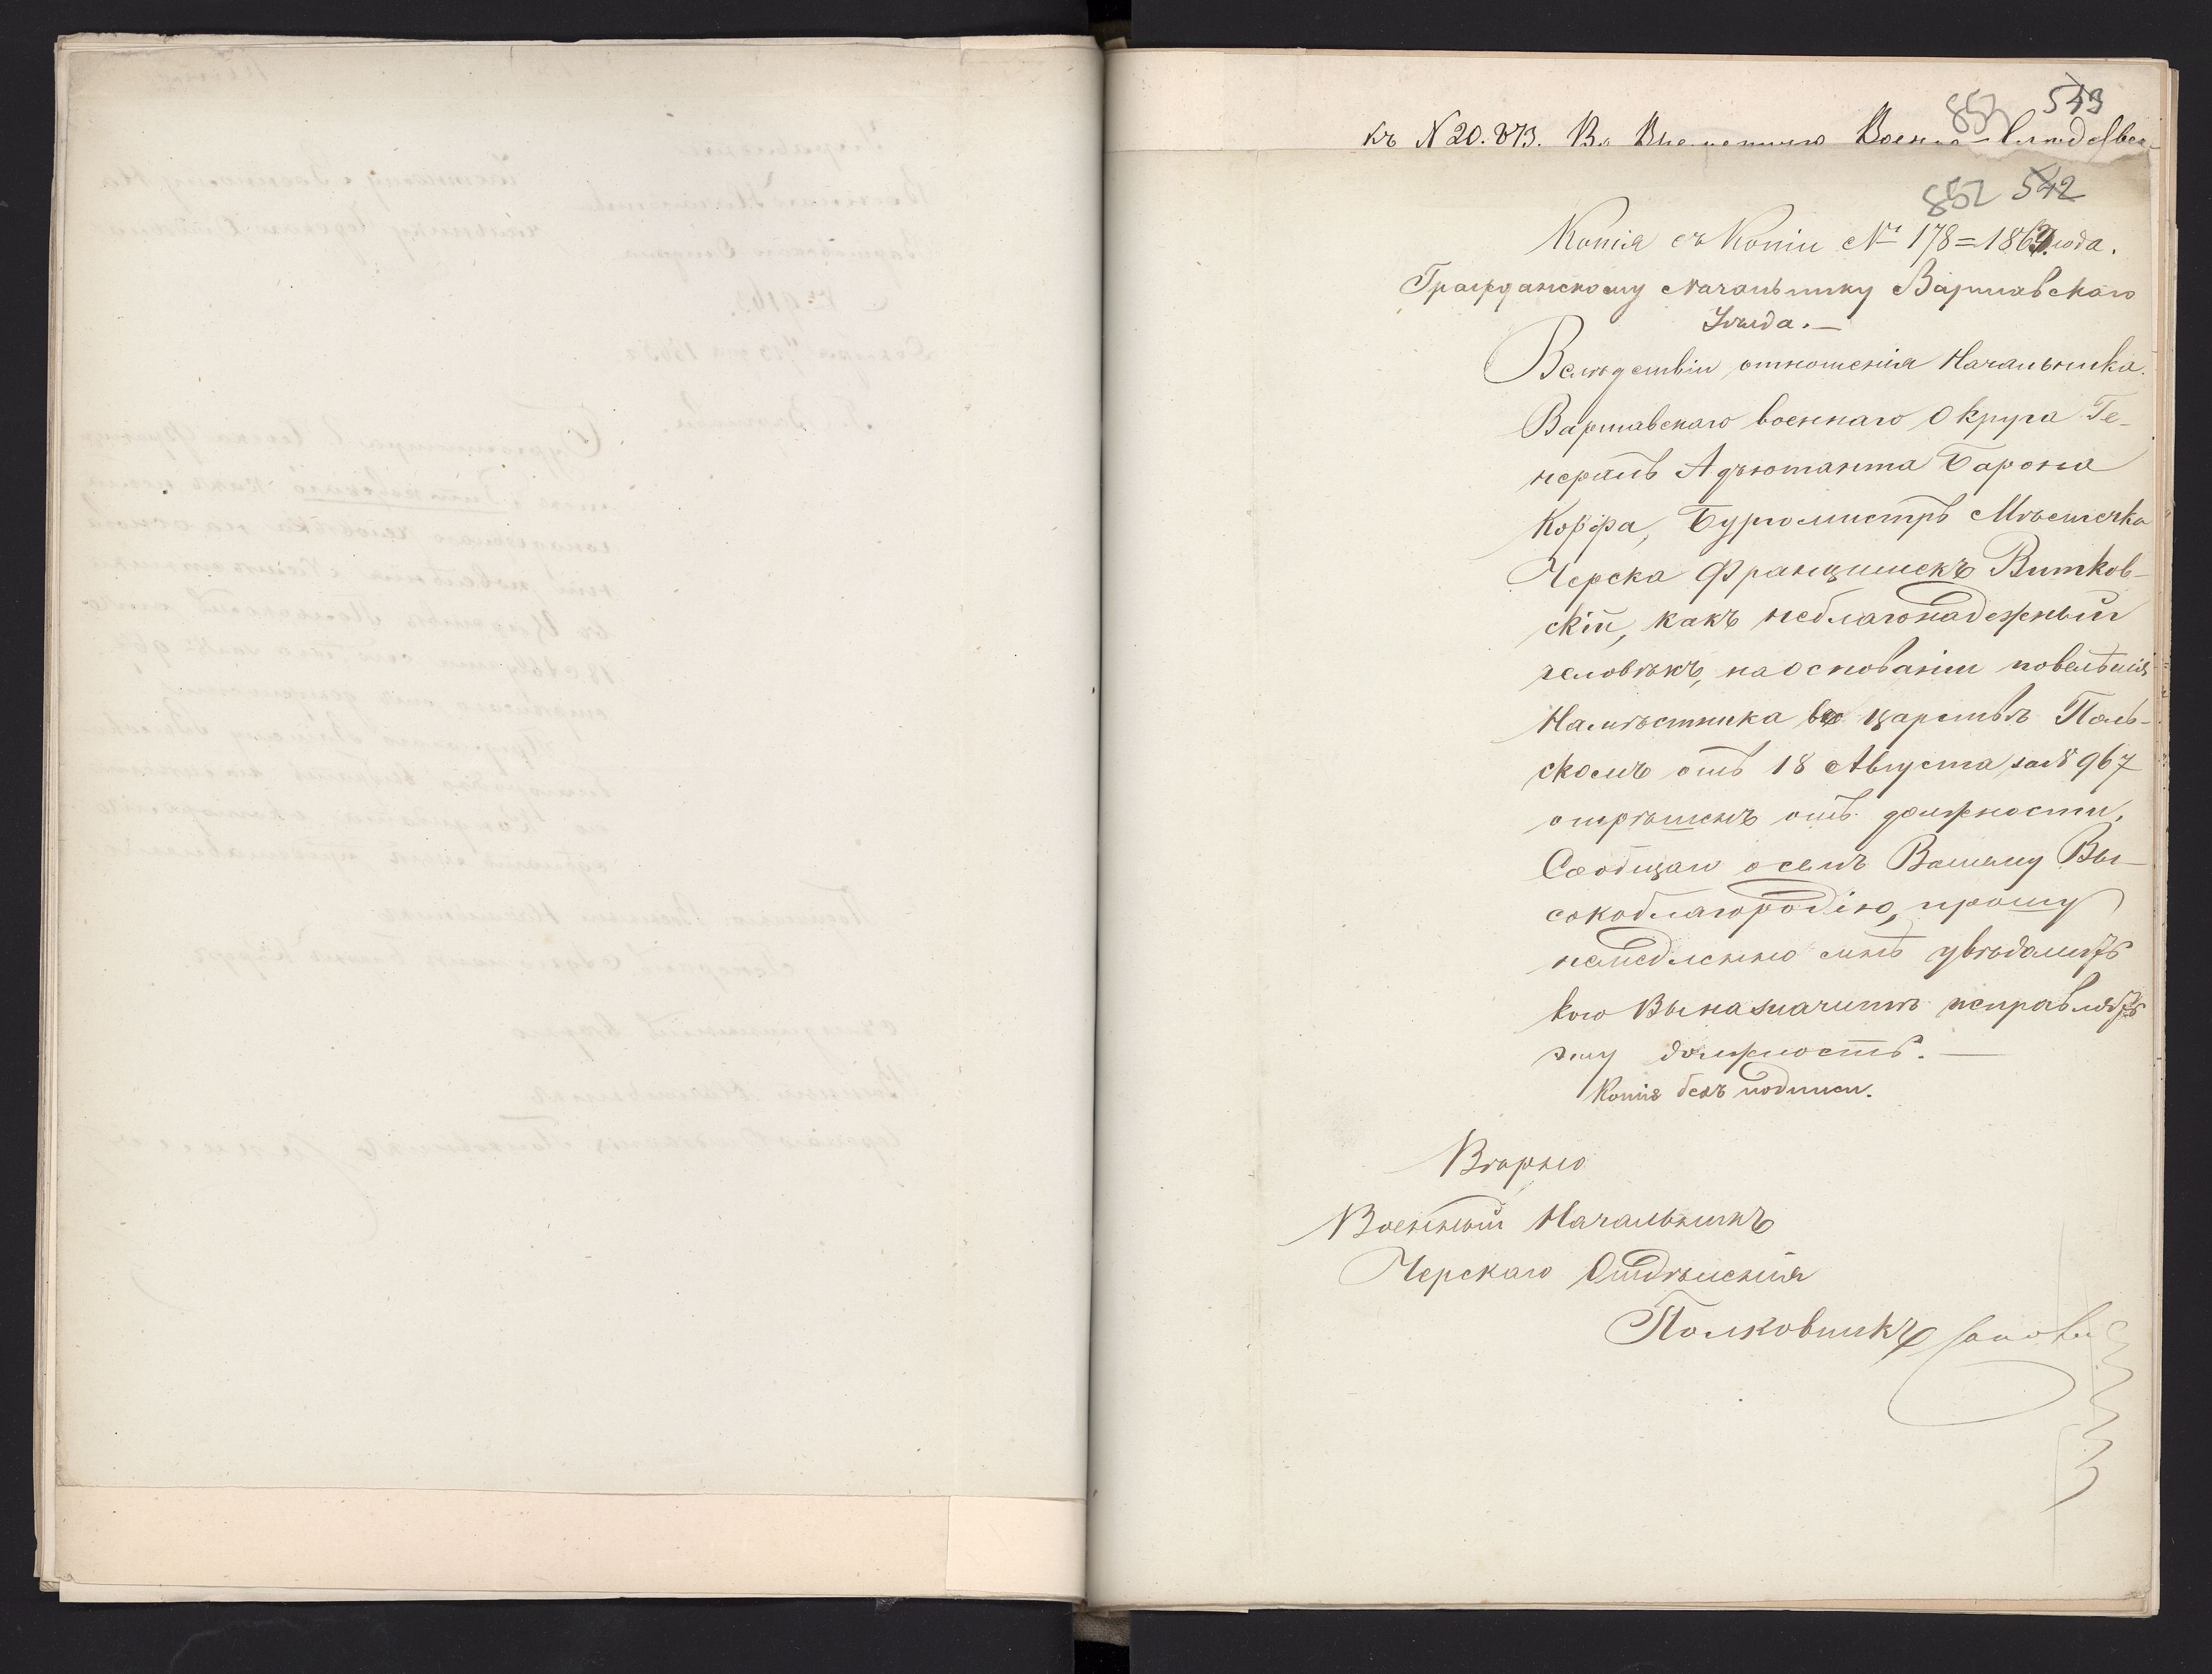 853 543
къ N 20.873. Во Временную Военно-Слѣдствен-
852 542
Копія съ Копіи № 178=1863 года.
Гражданскому Начальнику Варшавскаго
Уѣзда.—
Вслѣдствіи отношенія Начальника
Варшавскаго военнаго Округа Ге-
нералъ Адъютанта Барона
Корфа, Бургомистръ Мѣстечка
Черска Францишекъ Витков-
скій, какъ неблагонадежный
человѣкъ, на основаніи повелѣнія
Намѣстника въ царствѣ Поль-
скомъ отъ 18 Августа за № 967
отрѣшенъ отъ должности.
Сообщаю о семъ Вашему Вы-
сокоблагородію, прошу
немедленно мнѣ увѣдомить
кого Вы назначите исправлять
эту должность.—
Копія безъ подписи.
Вѣрно
Военный Начальникъ
Черскаго Отдѣленія
Полковникъ